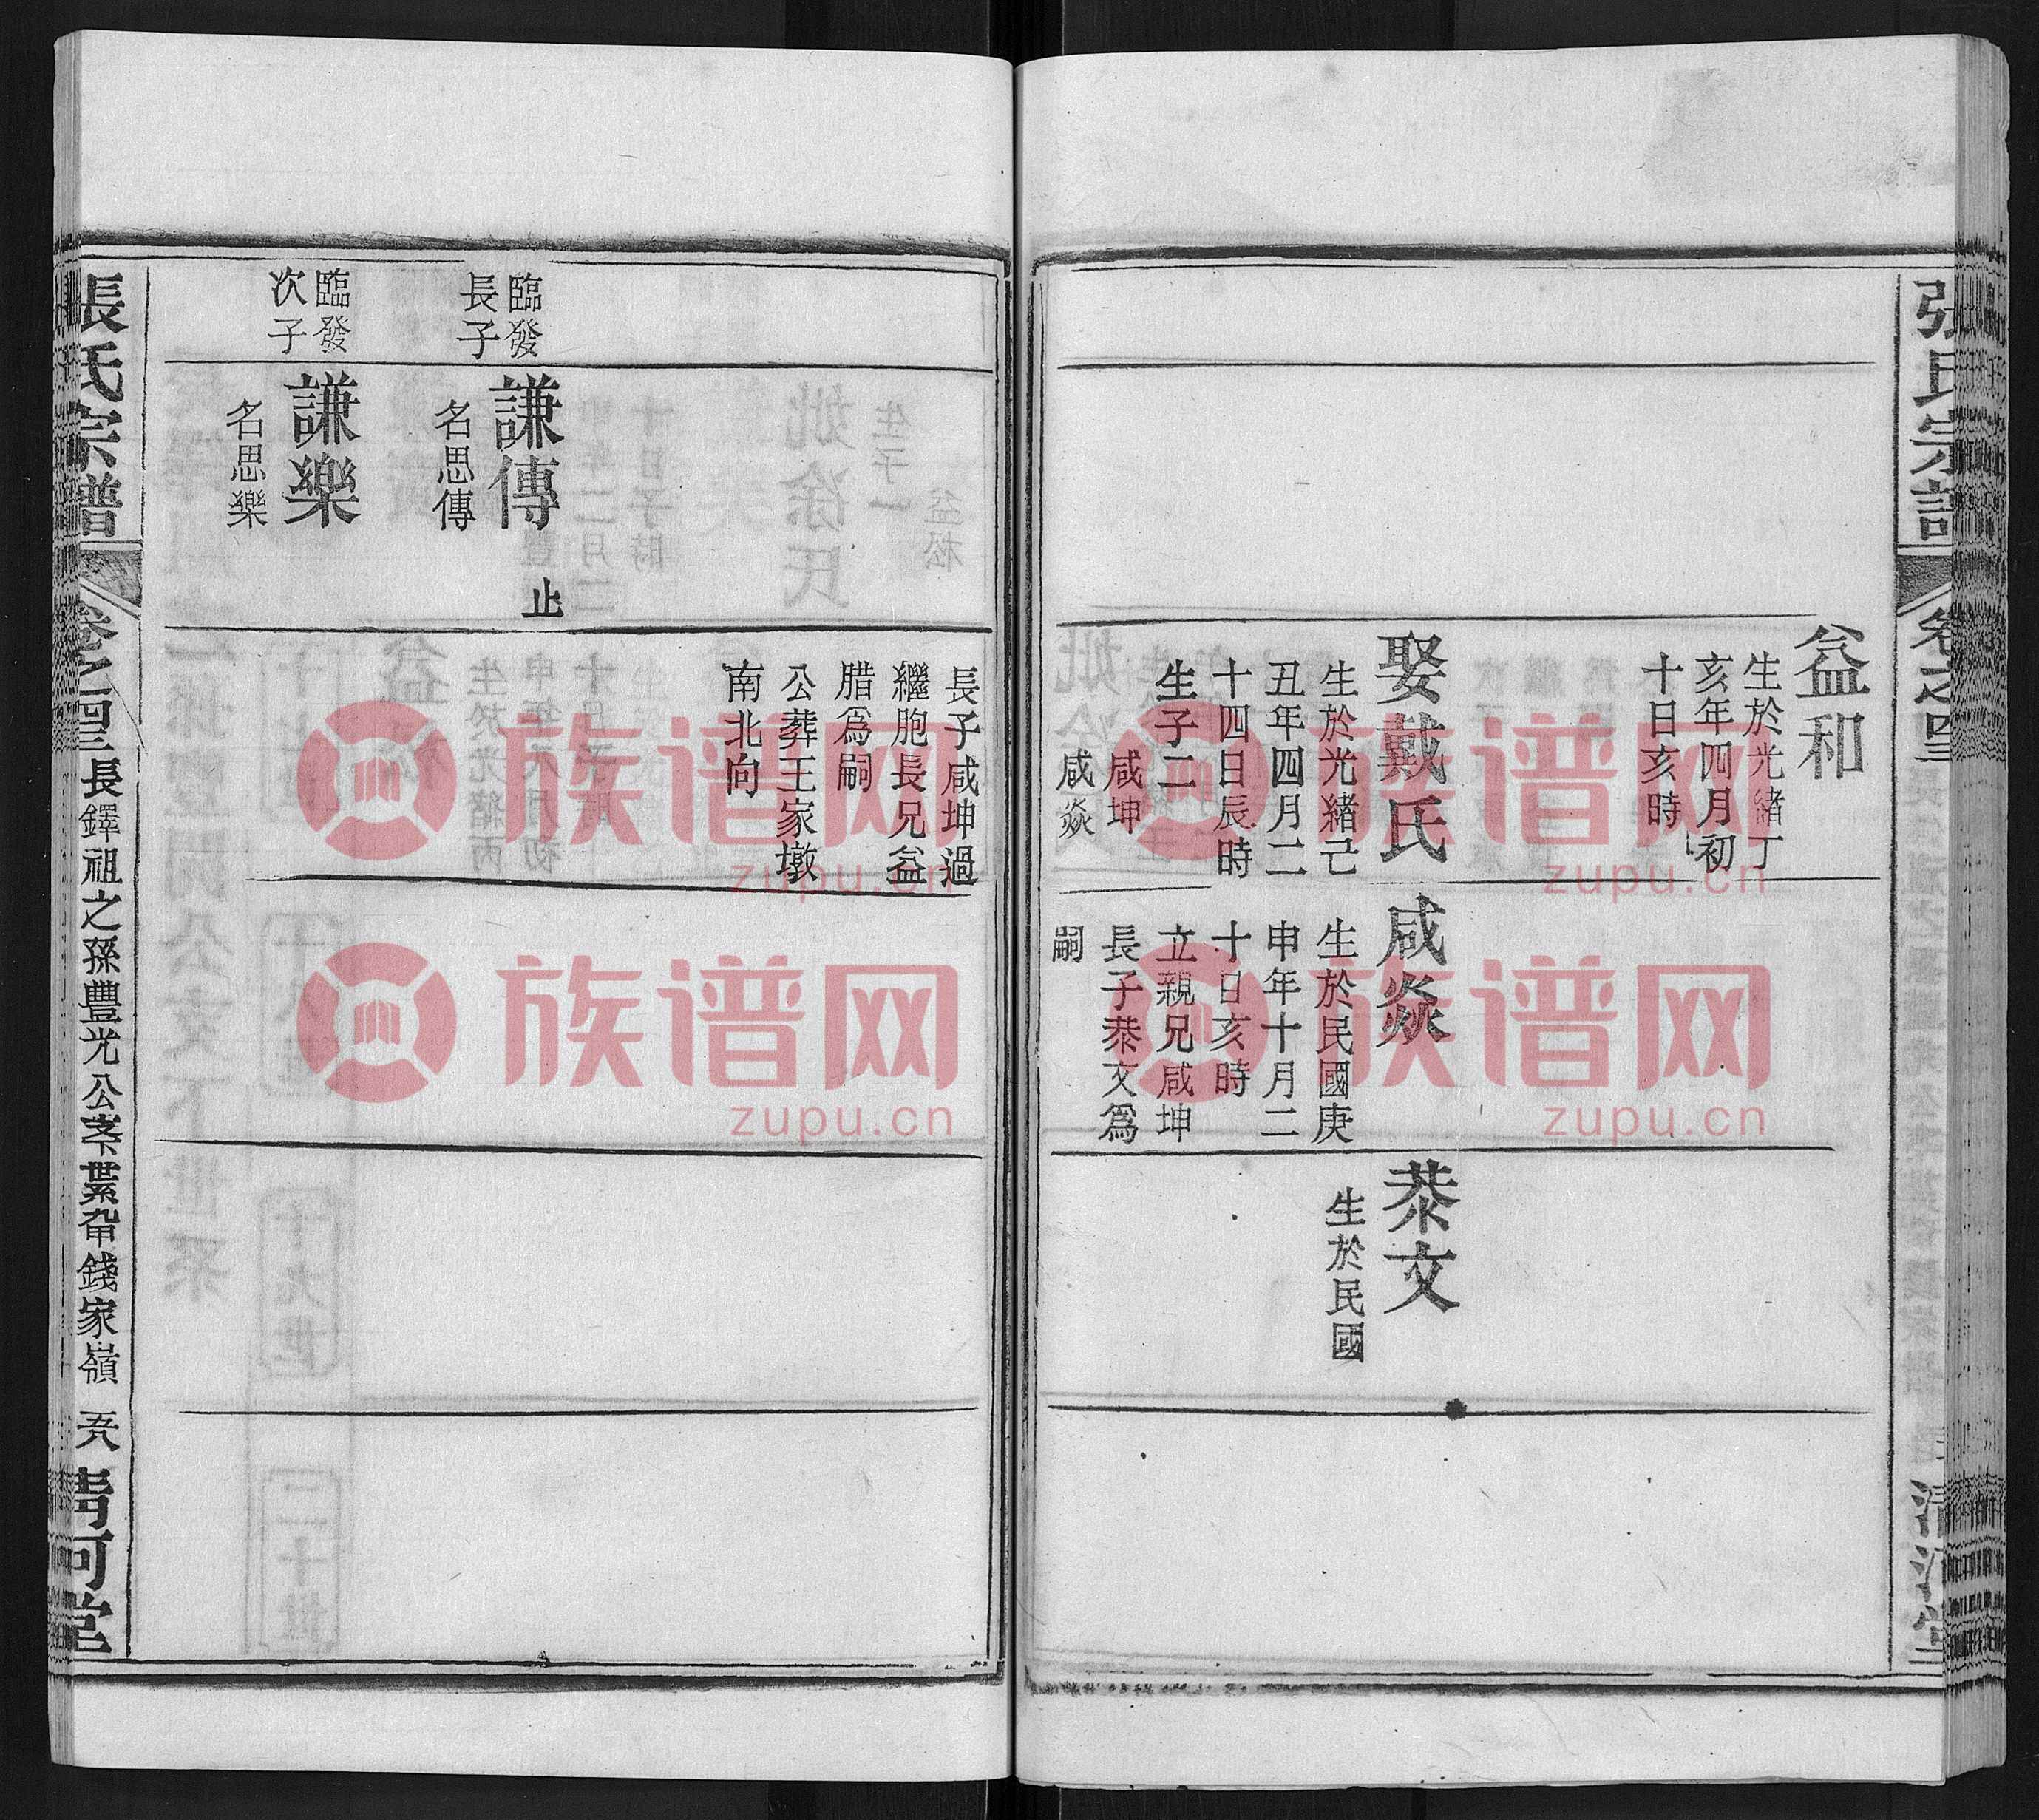 張氏宗譜
卷之四
清河堂
益和
生於光緒丁
亥年四月初
十日亥時
娶戴氏
生於光緒己
丑年四月二
十四日辰時
生子二
咸坤
咸焱
咸焱
生於民國庚
申年十月二
十日亥時
立親兄咸坤
長子恭文為
嗣
恭文
生於民國
長子咸坤過
繼胞長兄益
腊為嗣
公葬王家墩
南北向
臨發
長子
謙傳
名思傳
止
臨發
次子
謙樂
名思樂
張氏宗譜
卷之四
長鐸祖之孫豐光公支下
錢家嶺
清河堂
族谱网
zupu.cn
族谱网
zupu.cn
族谱网
zupu.cn
族谱网
zupu.cn